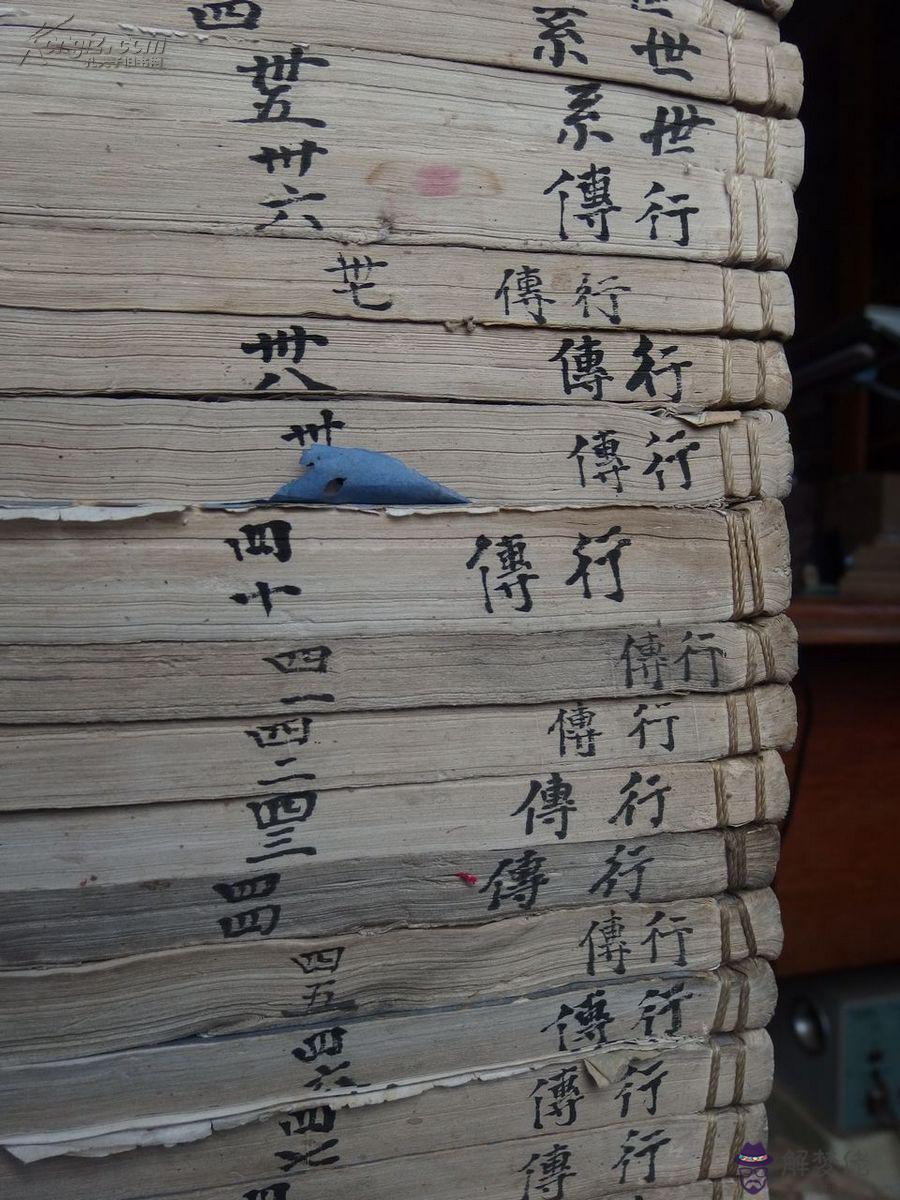 世系 四
世系 卅五
行傳 卅六
行傳 卅七
行傳 卅八
行傳 卅
行傳 四十
行傳 四一
行傳 四二
行傳 四三
行傳 四四
行傳 四五
行傳 四六
行傳 四七
行傳 四
Kongfz.com
孔夫子旧书网
解梦佬